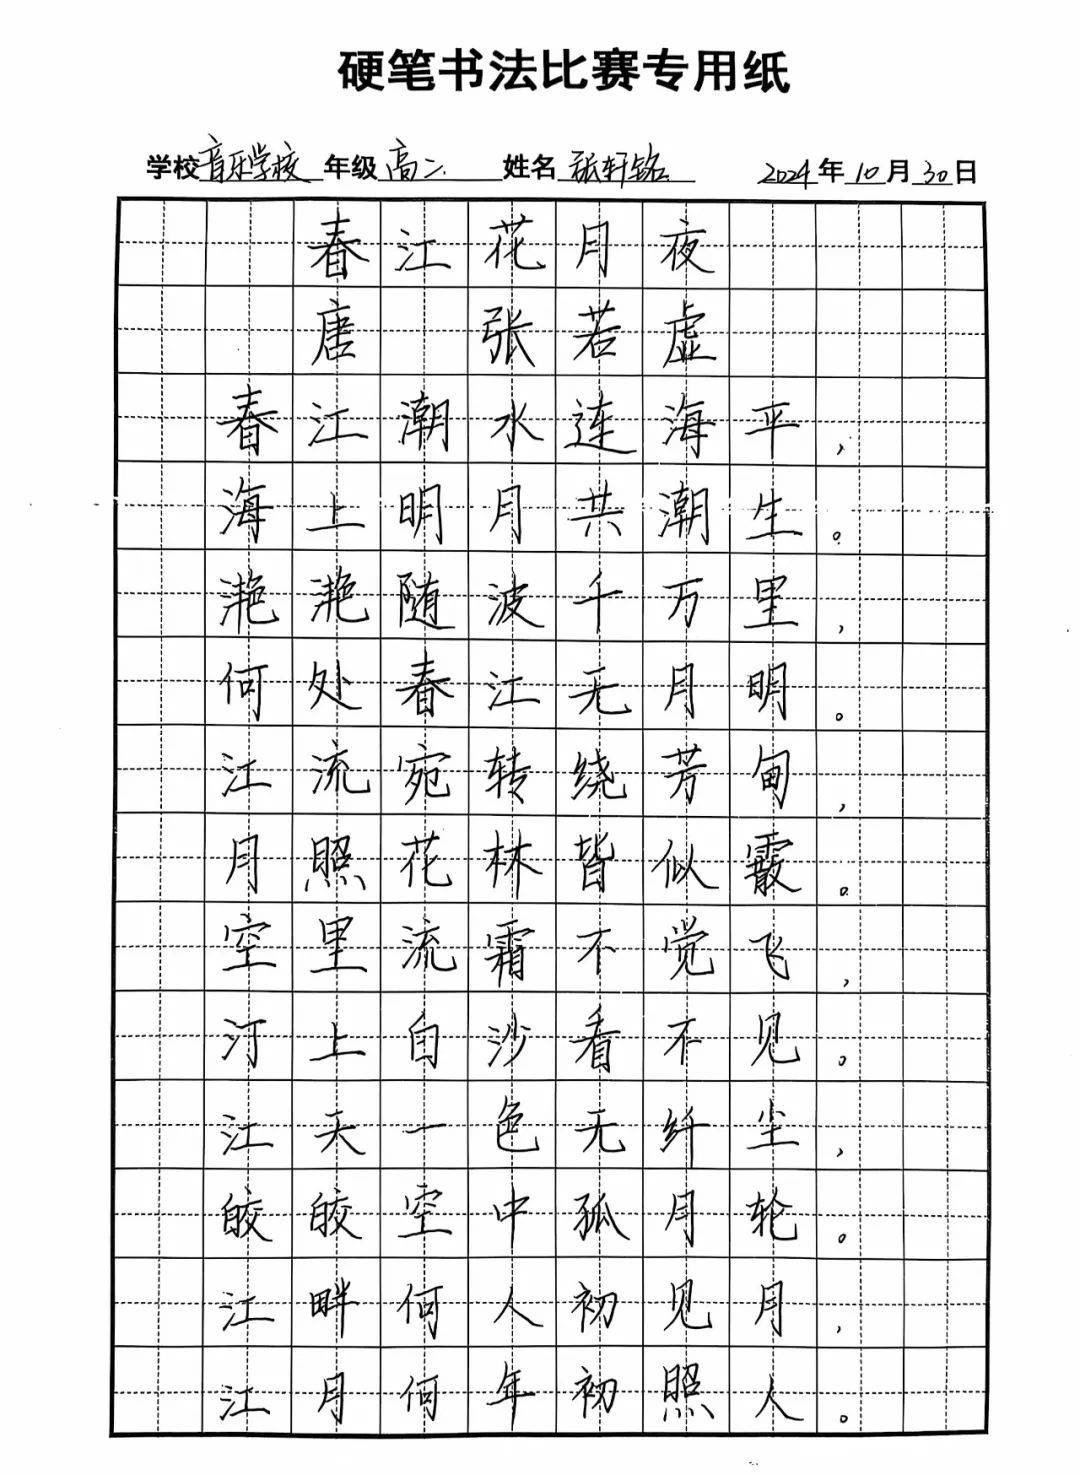 硬笔书法比赛专用纸
学校音乐学校 年级高二 姓名张轩铭 2024年10月30日
春江花月夜
唐 张若虚
春江潮水连海平，
海上明月共潮生。
滟滟随波千万里，
何处春江无月明。
江流宛转绕芳甸，
月照花林皆似霰。
空里流霜不觉飞，
汀上白沙看不见。
江天一色无纤尘，
皎皎空中孤月轮。
江畔何人初见月，
江月何年初照人。